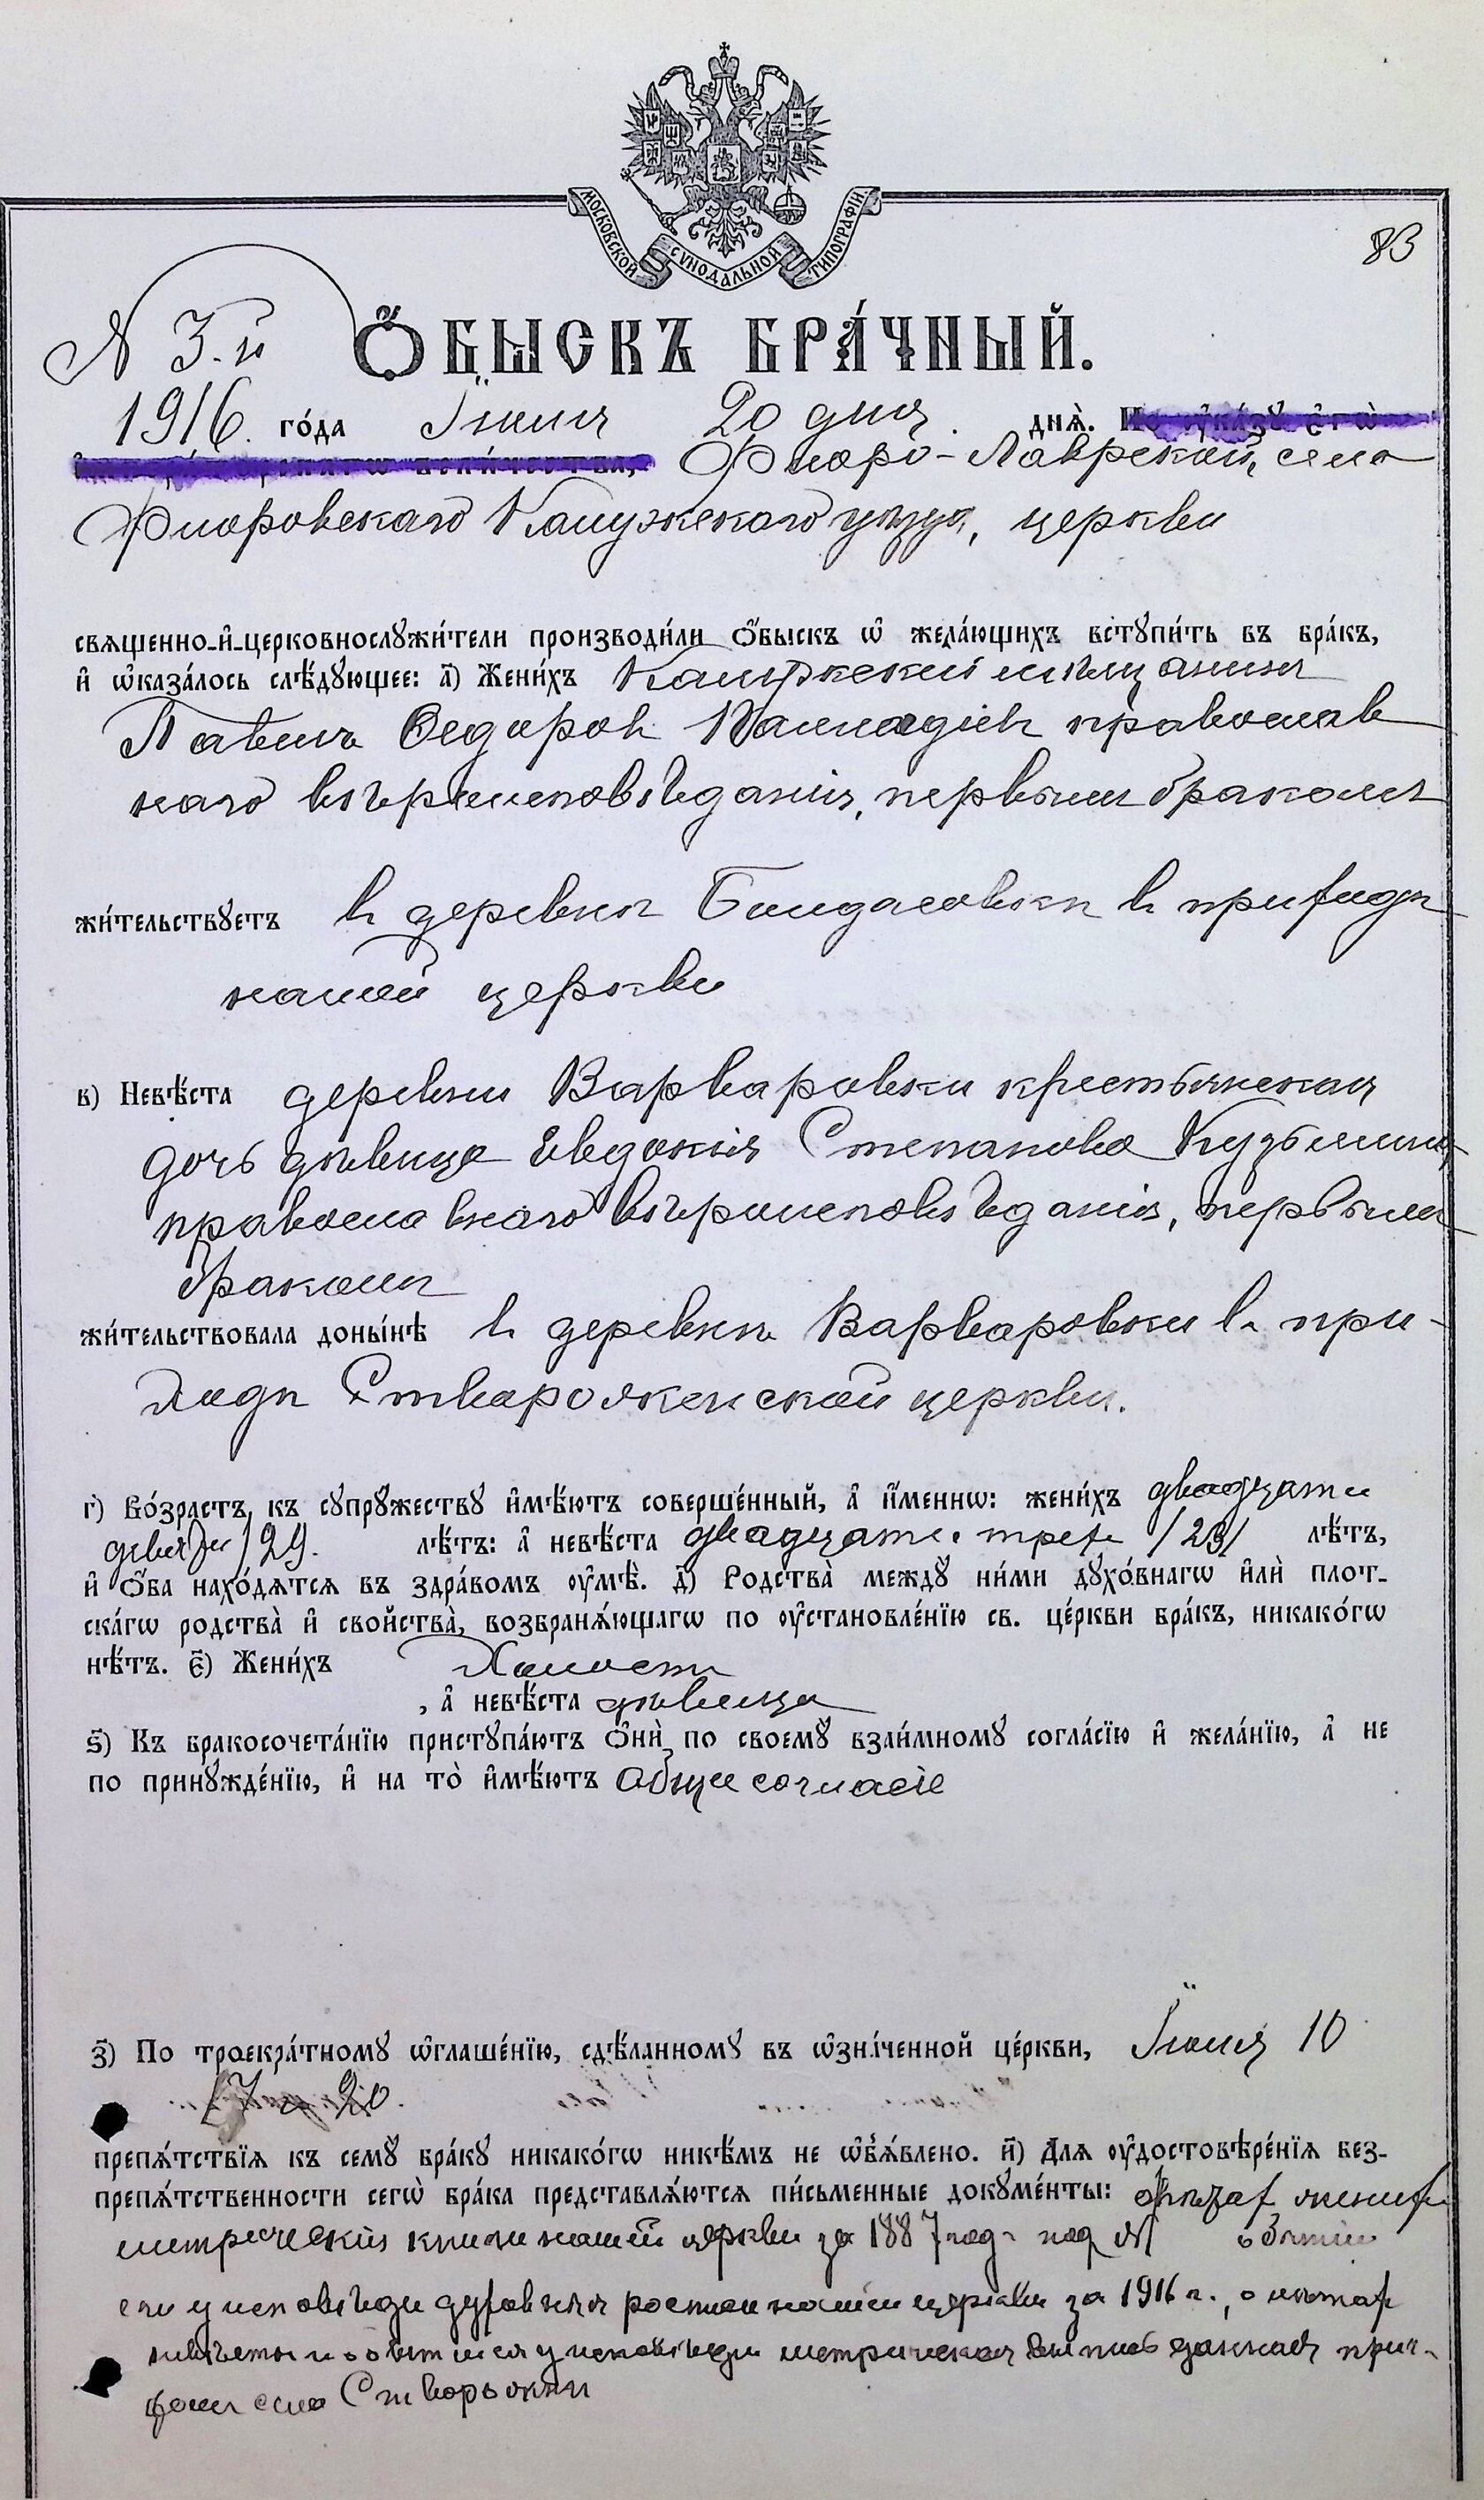 МОСКОВСКОЙ СѴНОДАЛЬНОЙ ТИПОГРАФІИ.
83
N 3.й
Ѻ҆БЫСКЪ БРА́ЧНЫЙ.
1916. го́да Іюля 20 дня. днѧ̀. По ᲂу҆ка́зу є҆гѡ̀
Флоро-Лаврской, села
Флоровскаго Калужскаго уѣзда, церкви
свѧщенно-и҆-церковнослꙋжи́тели производи́ли ѻ҆́быскъ ѡ҆ жела́ющихъ встꙋпи́ть въ бра́къ,
и҆ ѡ҆каза́лось слѣ́дꙋющее: а҃) Жени́хъ Калужский мѣщанинъ
Павелъ Ѳедоровъ православ
наго вѣроисповѣданія, первымъ бракомъ
жи́тельствꙋетъ въ деревнѣ въ приходѣ
нашей церкви
в҃) Невѣ́ста деревни Варваровки крестьянская
дочь дѣвица Евдокія Степанова Кузьмина
православнаго вѣроисповѣданія, первымъ
бракомъ
жи́тельствовала доны́нѣ въ деревнѣ Варваровки въ при-
ходѣ церкви.
г҃) Во́зрастъ къ сꙋпрꙋ́жествꙋ и҆мѣ́ютъ соверше́нный, а҆ и҆́меннѡ: жени́хъ двадцати
девяти /29. лѣ́тъ: а҆ невѣ́ста двадцати трехъ /23/ лѣ́тъ,
и҆ ѻ҆́ба нахо́дѧтсѧ въ здра́вомъ ᲂу҆мѣ̀. д҃) Родства̀ междꙋ ни́ми дꙋхо́внагѡ и҆лѝ плот-
ска́гѡ родства̀ и҆ свойства̀, возбранѧ́ющагѡ по ᲂу҆становле́нїю св. це́ркви бра́къ, никако́гѡ
нѣ́тъ. є҃) Жени́хъ Холостъ
, а҆ невѣ́ста дѣвица
ѕ҃) Къ бракосочета́нїю пристꙋпа́ютъ ѻ҆нѝ по своемꙋ̀ взаи́мномꙋ согла́сїю и҆ жела́нїю, а҆ не
по принꙋжде́нїю, и҆ на то̀ и҆мѣ́ютъ обще согласіе
з҃) По троекра́тномꙋ ѡ҆глаше́нїю, сдѣ́ланномꙋ въ ѡ҆зна́ченной це́ркви, Іюля 10
17 и 20.
препѧ́тствїѧ къ семꙋ̀ бра́кꙋ никако́гѡ никѣ́мъ не ѡ҆б̾ѧ́влено. и҃) Длѧ ᲂу҆достовѣре́нїѧ без-
препѧ́тственности сегѡ̀ бра́ка представлѧ́ютсѧ пи́сьменные докꙋме́нты: о лѣтахъ жениха
метрическія книги нашей церкви за 1887 годъ подъ № о бытіи
его у исповѣди духовная роспись нашей церкви за 1916 г., о лѣтахъ
невѣсты и о бытіи ея у исповѣди метрическая выпись данная прич-
томъ села